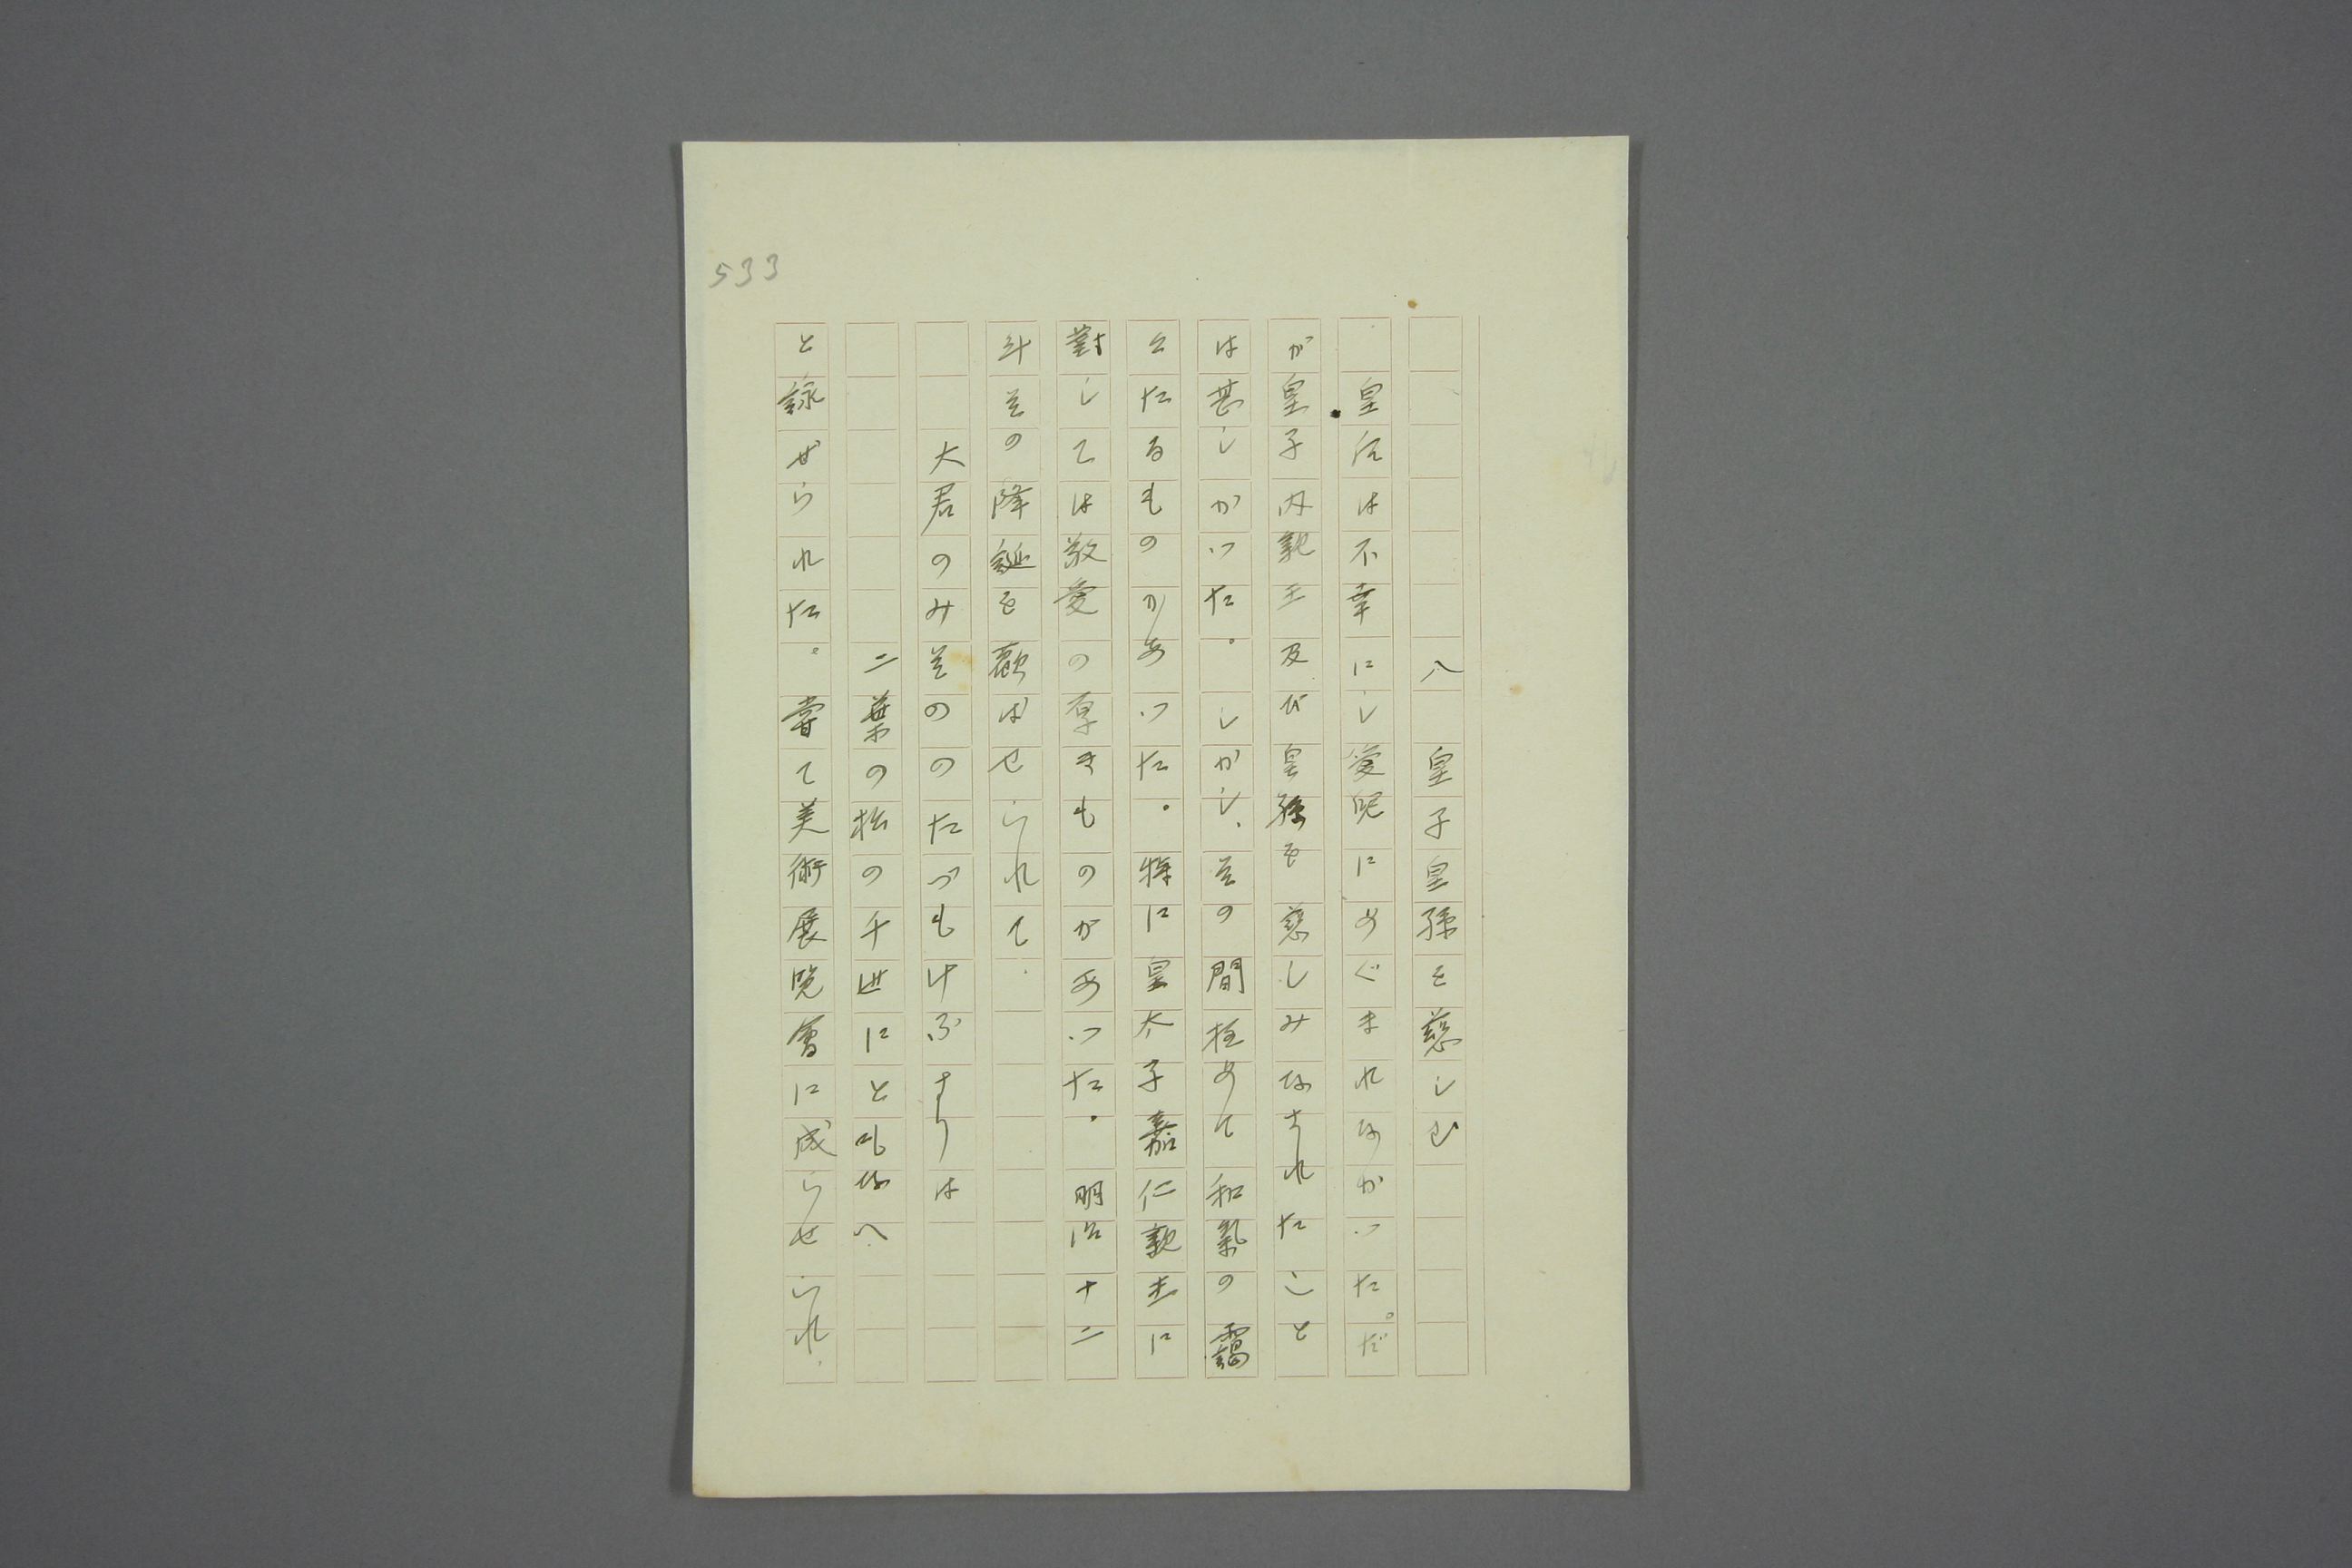 533
八 皇子皇孫を慈しむ
皇后は不幸にし愛児にめぐまれなかつた。だ
が皇子内親王及び皇孫を慈しみなされたこと
は甚しかつた。しかし、その間極めて和気の靄
々たるものがあつた。特に皇太子嘉仁親王に
對しては敬愛の厚きものがあつた。明治十二
年その降誕を歡ばせられて、
大君のみそののたづもけふよりは
二葉の松の千世にともなへ
と詠ぜられた。嘗て美術展覧會に成らせられ、